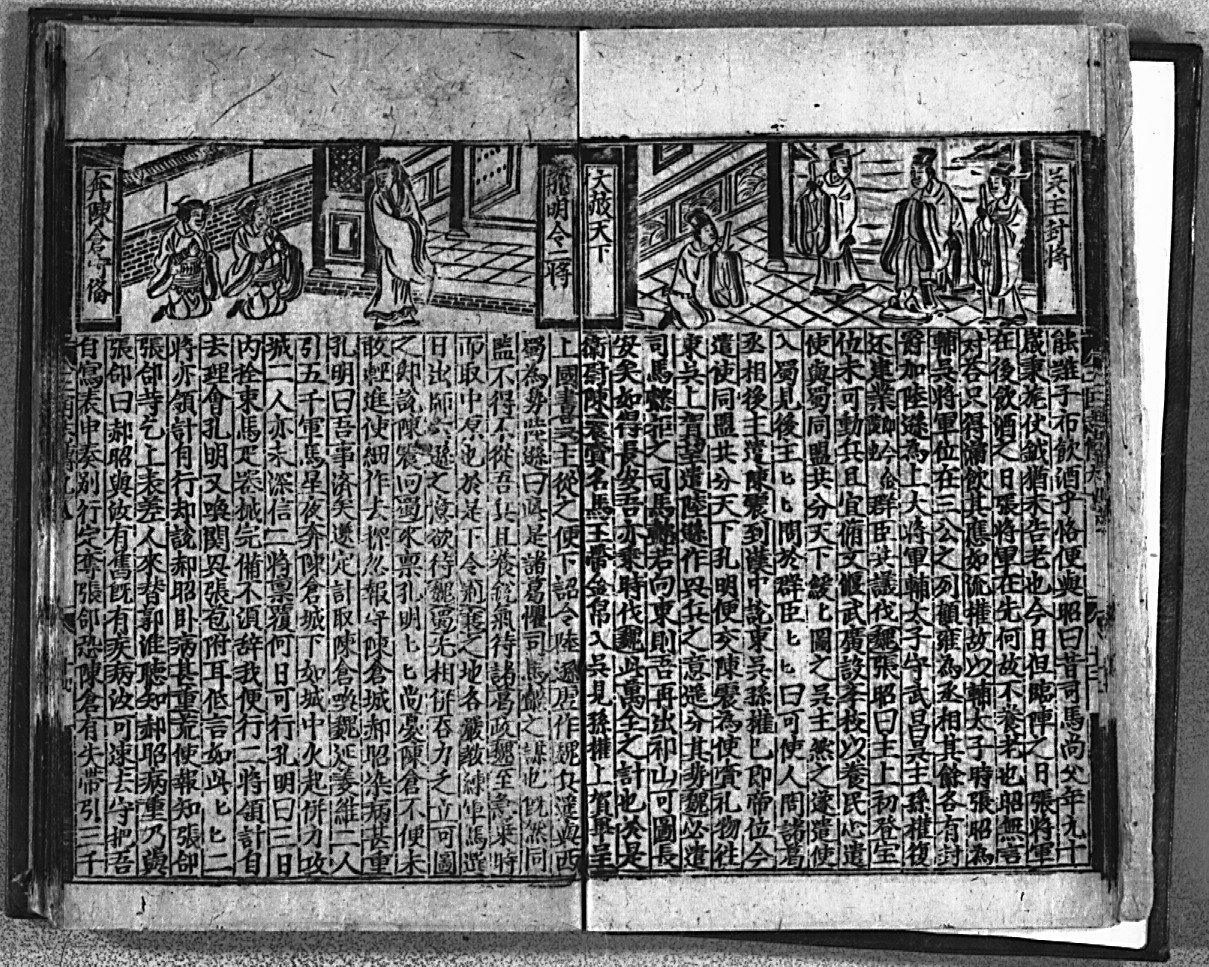 吴主封将
大赦天下
能離子布飲酒乎恪便與昭曰昔司馬尚父年九十
歲秉旄仗鉞猶未告老也今日但臨陣之日張將軍
在後飲酒之日張將軍在先何故不養老也昭無言
對答只得滿飲其應如流權故以輔太子時張昭為
輔吳將軍位在三公之列顧雍為丞相其餘各有封
爵加陸遜為上大將軍輔太子守武昌吳主孫權復
还建業 群臣共議伐魏張昭曰主上初登宝
位未可動兵且宜脩文偃武廣設李校以養民心遣
使與蜀同盟共分天下緩匕圖之吴主然之遂遣使
入蜀見後主匕匕問於群臣匕匕曰可使人問諸葛
丞相後主遣陳震到漢中說東吳孫權已即帝位今
遣使同盟共分天下孔明便交陳震為使賫礼物往
東吳上賀 遣陸遜作兵之意逕分其勢魏必遣
司馬懿拒之司馬懿若向東則吾再出祁山可圖長
安矣如得長安吾亦乘時伐魏此萬全之計也於是
衛尉陳震賫名馬玉帶金帛入吳見孫權上賀畢呈
孔明令二将
奔陳倉守俻
上國書吴主從之便下詔令陸遜虚作魏兵遥與西
蜀為勢陸遜曰此是諸葛懼司馬懿之謀也既然同
監不得不從吾兵且養銳氣待諸葛政魏至急乘時
而取中原也於是下令荆襄之地各嚴教練軍馬選
日出師 遜之意欲待魏蜀先相併吞力乏立可圖
之却說陳震回蜀來禀孔明匕匕尚憂陳倉不便未
敢輕進使細作去探忽報守陳倉城郝昭染病甚重
孔明曰吾事濟矣遂定計取陳倉喚魏延姜維二人
引五千軍馬星夜奔陳倉城下如城中火起併力攻
城二人亦未深信二將禀覆何日可行孔明曰三日
内拴束馬疋器械完備不須辞我便行二將領計自
去理會孔明又喚関興張苞附耳低言如此匕匕二
將亦領計自行却說郝昭卧病甚重荒使報知張郃
張郃 上表差人來替郭淮聽知郝昭病重乃與
張郃曰郝昭與汝有舊既有疾病汝可速去守把吾
自寫表申奏別行定奪張郃恐陳倉有失带引三千